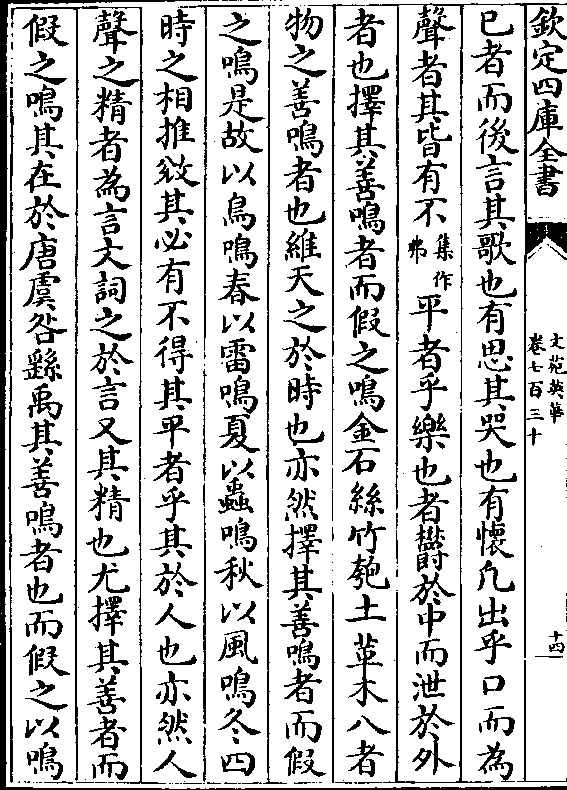 欽定四庫全書
文苑英華
卷七百三十
十四
已者而後言其歌也有思其哭也有懷凡出乎口而為
聲者其皆有不集作弗平者乎樂也者鬱於中而泄於外
者也擇其善鳴者而假之鳴金石絲竹匏土革木八者
物之善鳴者也維天之於時也亦然擇其善鳴者而假
之鳴是故以鳥鳴春以雷鳴夏以蟲鳴秋以風鳴冬四
時之相推敓其必有不得其平者乎其於人也亦然人
聲之精者為言文詞之於言又其精也尤擇其善者而
假之鳴其在於唐虞咎繇禹其善鳴者也而假之以鳴